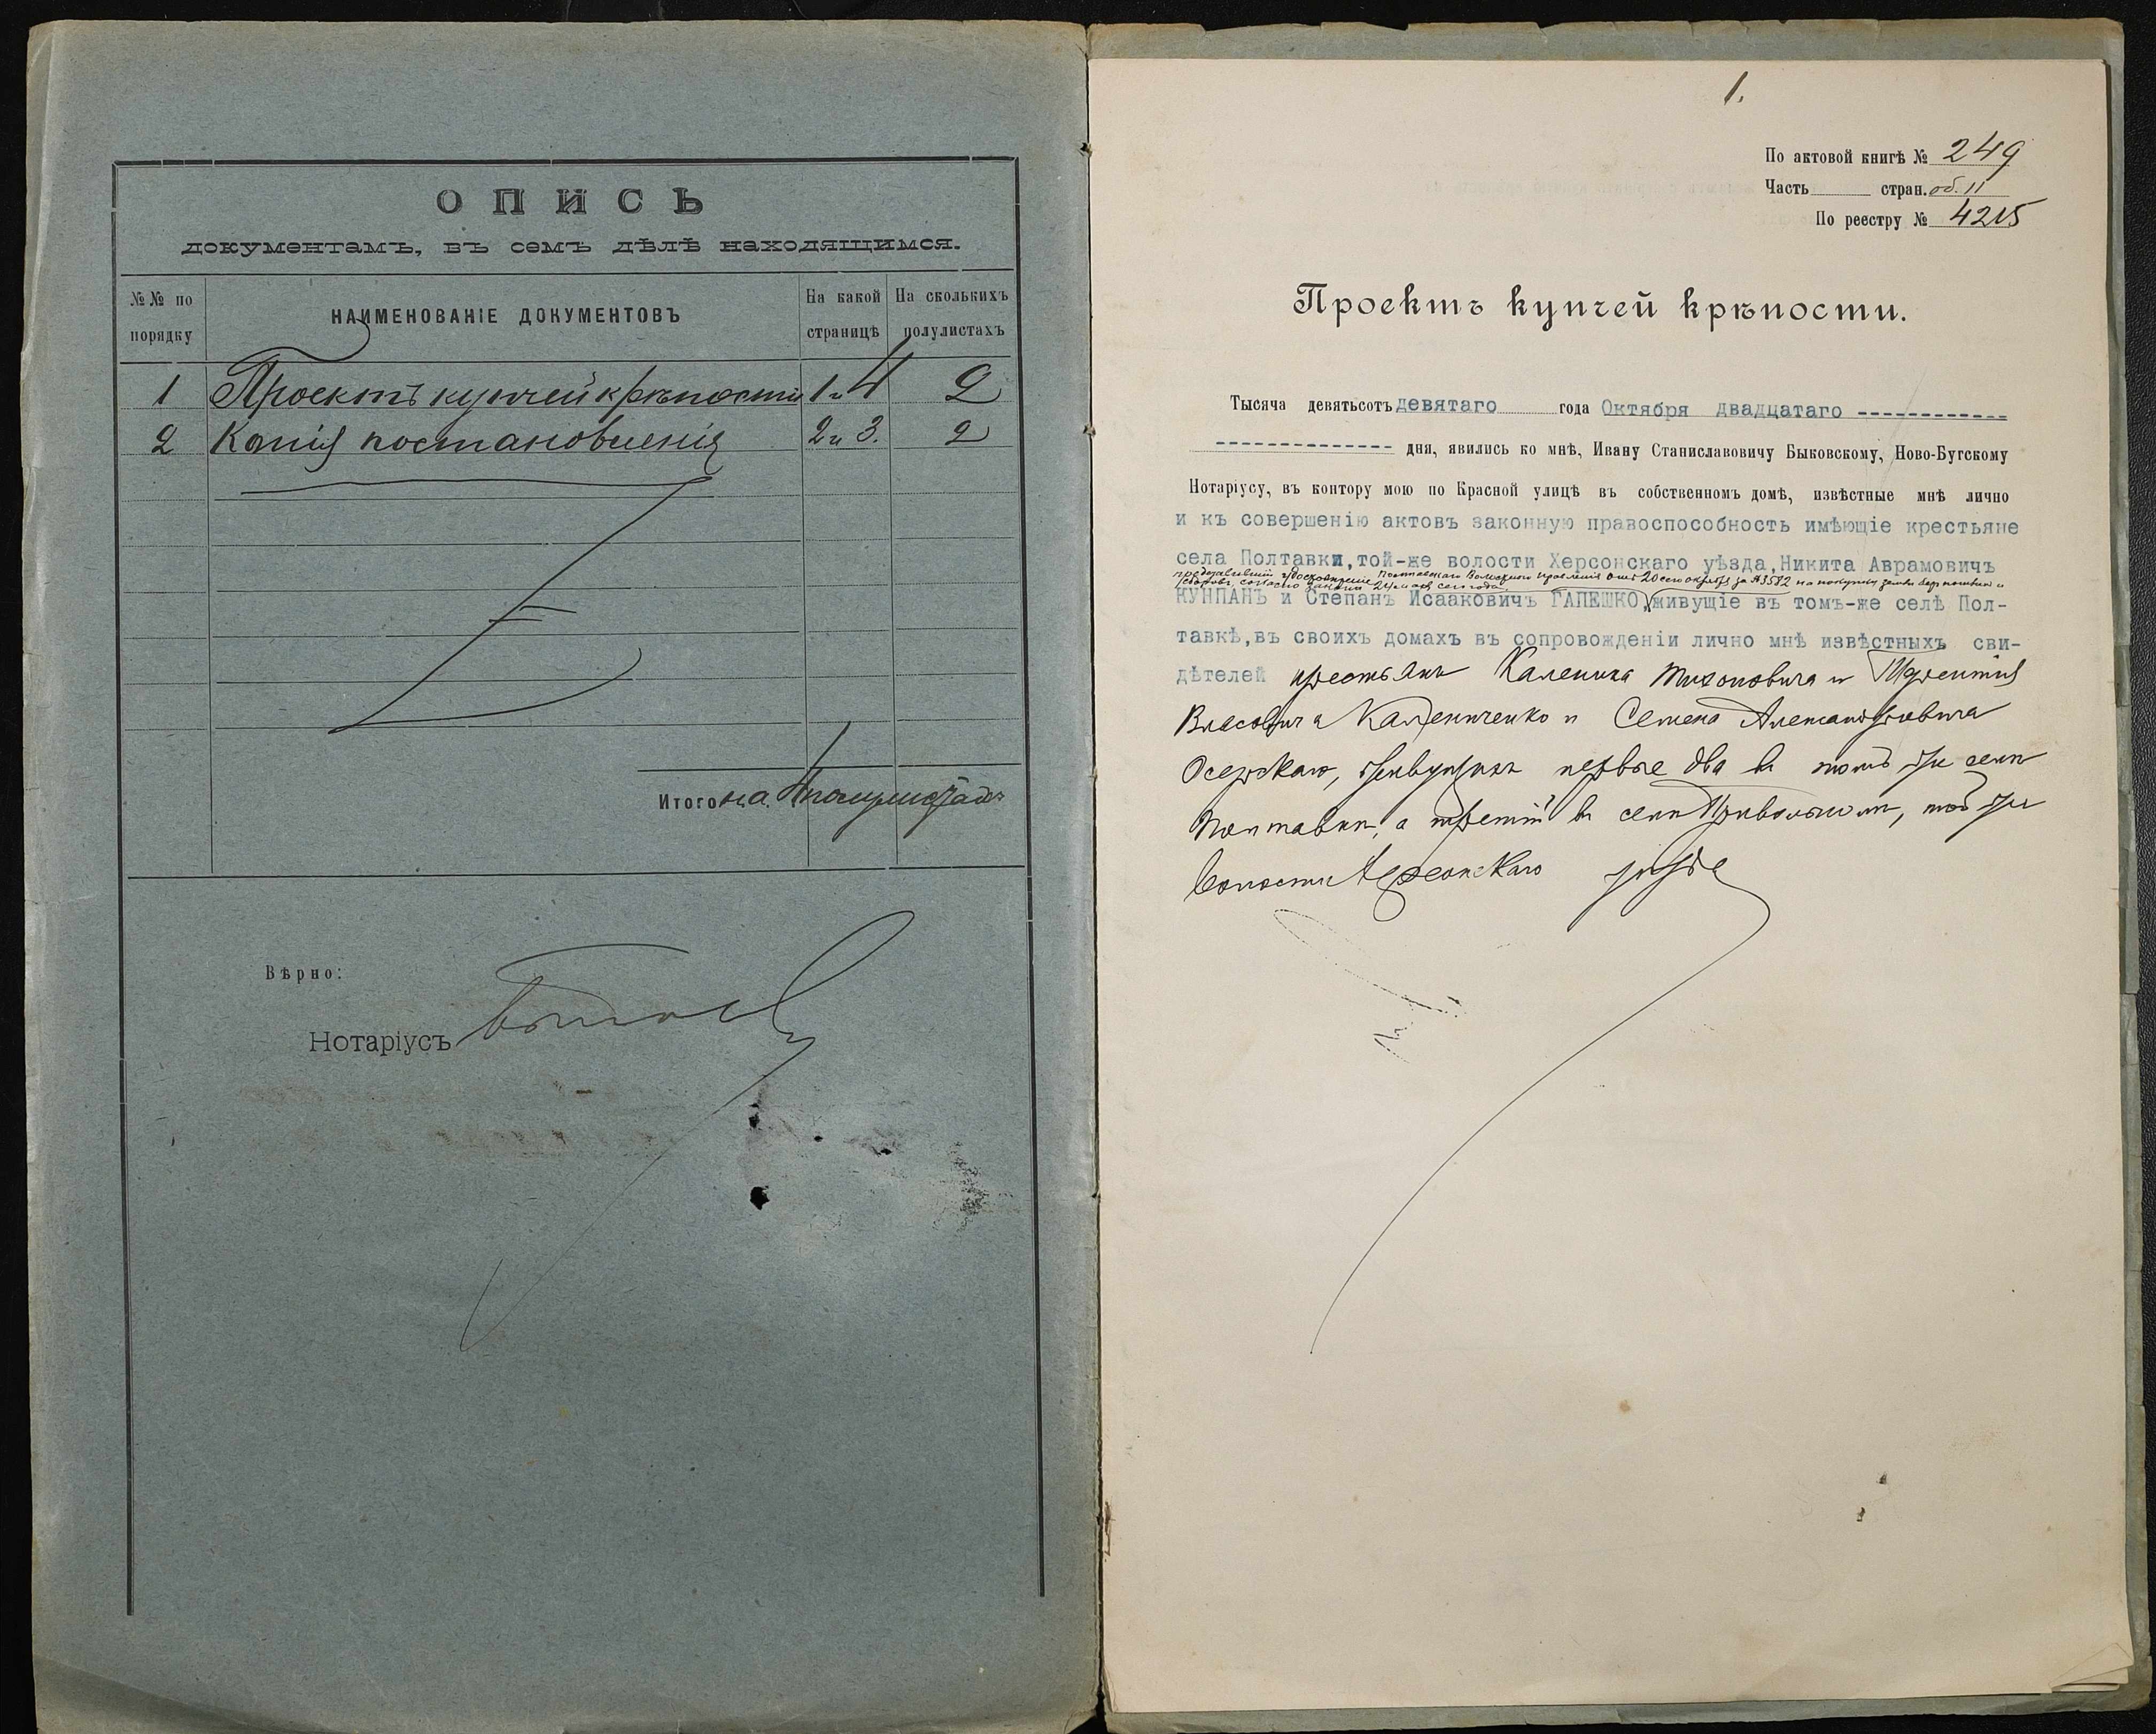 ОПИСЬ
документамъ, въ семъ дѣлѣ находящимся.
№№ по порядку
НАИМЕНОВАНІЕ ДОКУМЕНТОВЪ
На какой страницѣ
На сколькихъ полулистахъ
1 Проектъ купчей крѣпости 1 и 4 2
2 Копія постановленія 2 и 3. 2
Итого на 4 полулистахъ
Вѣрно:
Нотаріусъ
1.
По актовой книгѣ № 249
Часть стран. об. 11
По реестру № 4215
Проектъ купчей крѣпости.
Тысяча девятьсотъ девятаго года Октября двадцатаго ------------
-------------- дня, явились ко мнѣ, Ивану Станиславовичу Быковскому, Ново-Бугскому
Нотаріусу, въ контору мою по Красной улицѣ въ собственномъ домѣ, извѣстные мнѣ лично
и къ совершенію актовъ законную правоспособность имѣющіе крестьяне
села Полтавки, той-же волости Херсонскаго уѣзда, Никита Аврамовичъ
Полтавскаго Волостного Правленія отъ 20 сего октября за № 3572 на покупку земли
согласно закона сего года
КУНПАНЪ и Степанъ Исааковичъ ГАПЕШКО, живущіе въ томъ-же селѣ Пол-
тавкѣ, въ своихъ домахъ въ сопровожденіи лично мнѣ извѣстныхъ сви-
дѣтелей крестьянъ Каленика Тихоновича и Терентія
Власовича Калениченко и Семена Александровича
Осерскаго, живущихъ первые два въ томъ же селѣ
Полтавкѣ, а третій въ селѣ Привольномъ, той же
волости Херсонскаго уѣзда